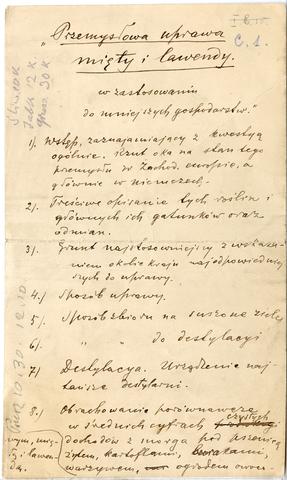 I C 10.
C. 1.
„Przemysłowa uprawa
mięty i lawendy.
w zastosowaniu
do mniejszych gospodarstw."
1). Wstęp, zaznajamiający z kwestyą
ogólnie. Rzut oka na stan tego
przemysłu w Zachod. europie, a
głównie w niemczech.
2). Treściwe opisanie tych roślin i
głównych ich gatunków oraz
odmian.
3). Grunt najstosowniejszy z wskaza-
niem okolic kraju najodpowiedniej-
szych do uprawy.
4.) Sposób uprawy.
5). Sposób zbioru na suszone ziele
6). " " do destylacyi
7) Destylacya. Urządzenie naj-
tańsze destylarni.
8.) Obrachowanie porównawcze
w średnich cyfrach czystych
dochodów z morga pod pszenicą
żytem, kartoflami, burakami,
warzywem, ogrodem owoco-
wym, mię-
tą i lawen-
dą.